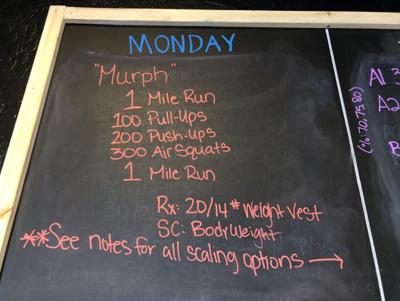 MONDAY
"Murph"
1 Mile Run
100 Pull-Ups
200 Push-ups
300 Air Squats
1 Mile Run
Rx: 20/14 # Weight Vest
SC: BodyWeight
**See notes for all scaling options →
A1 3
A2
B
(%: 70, 75, 80)